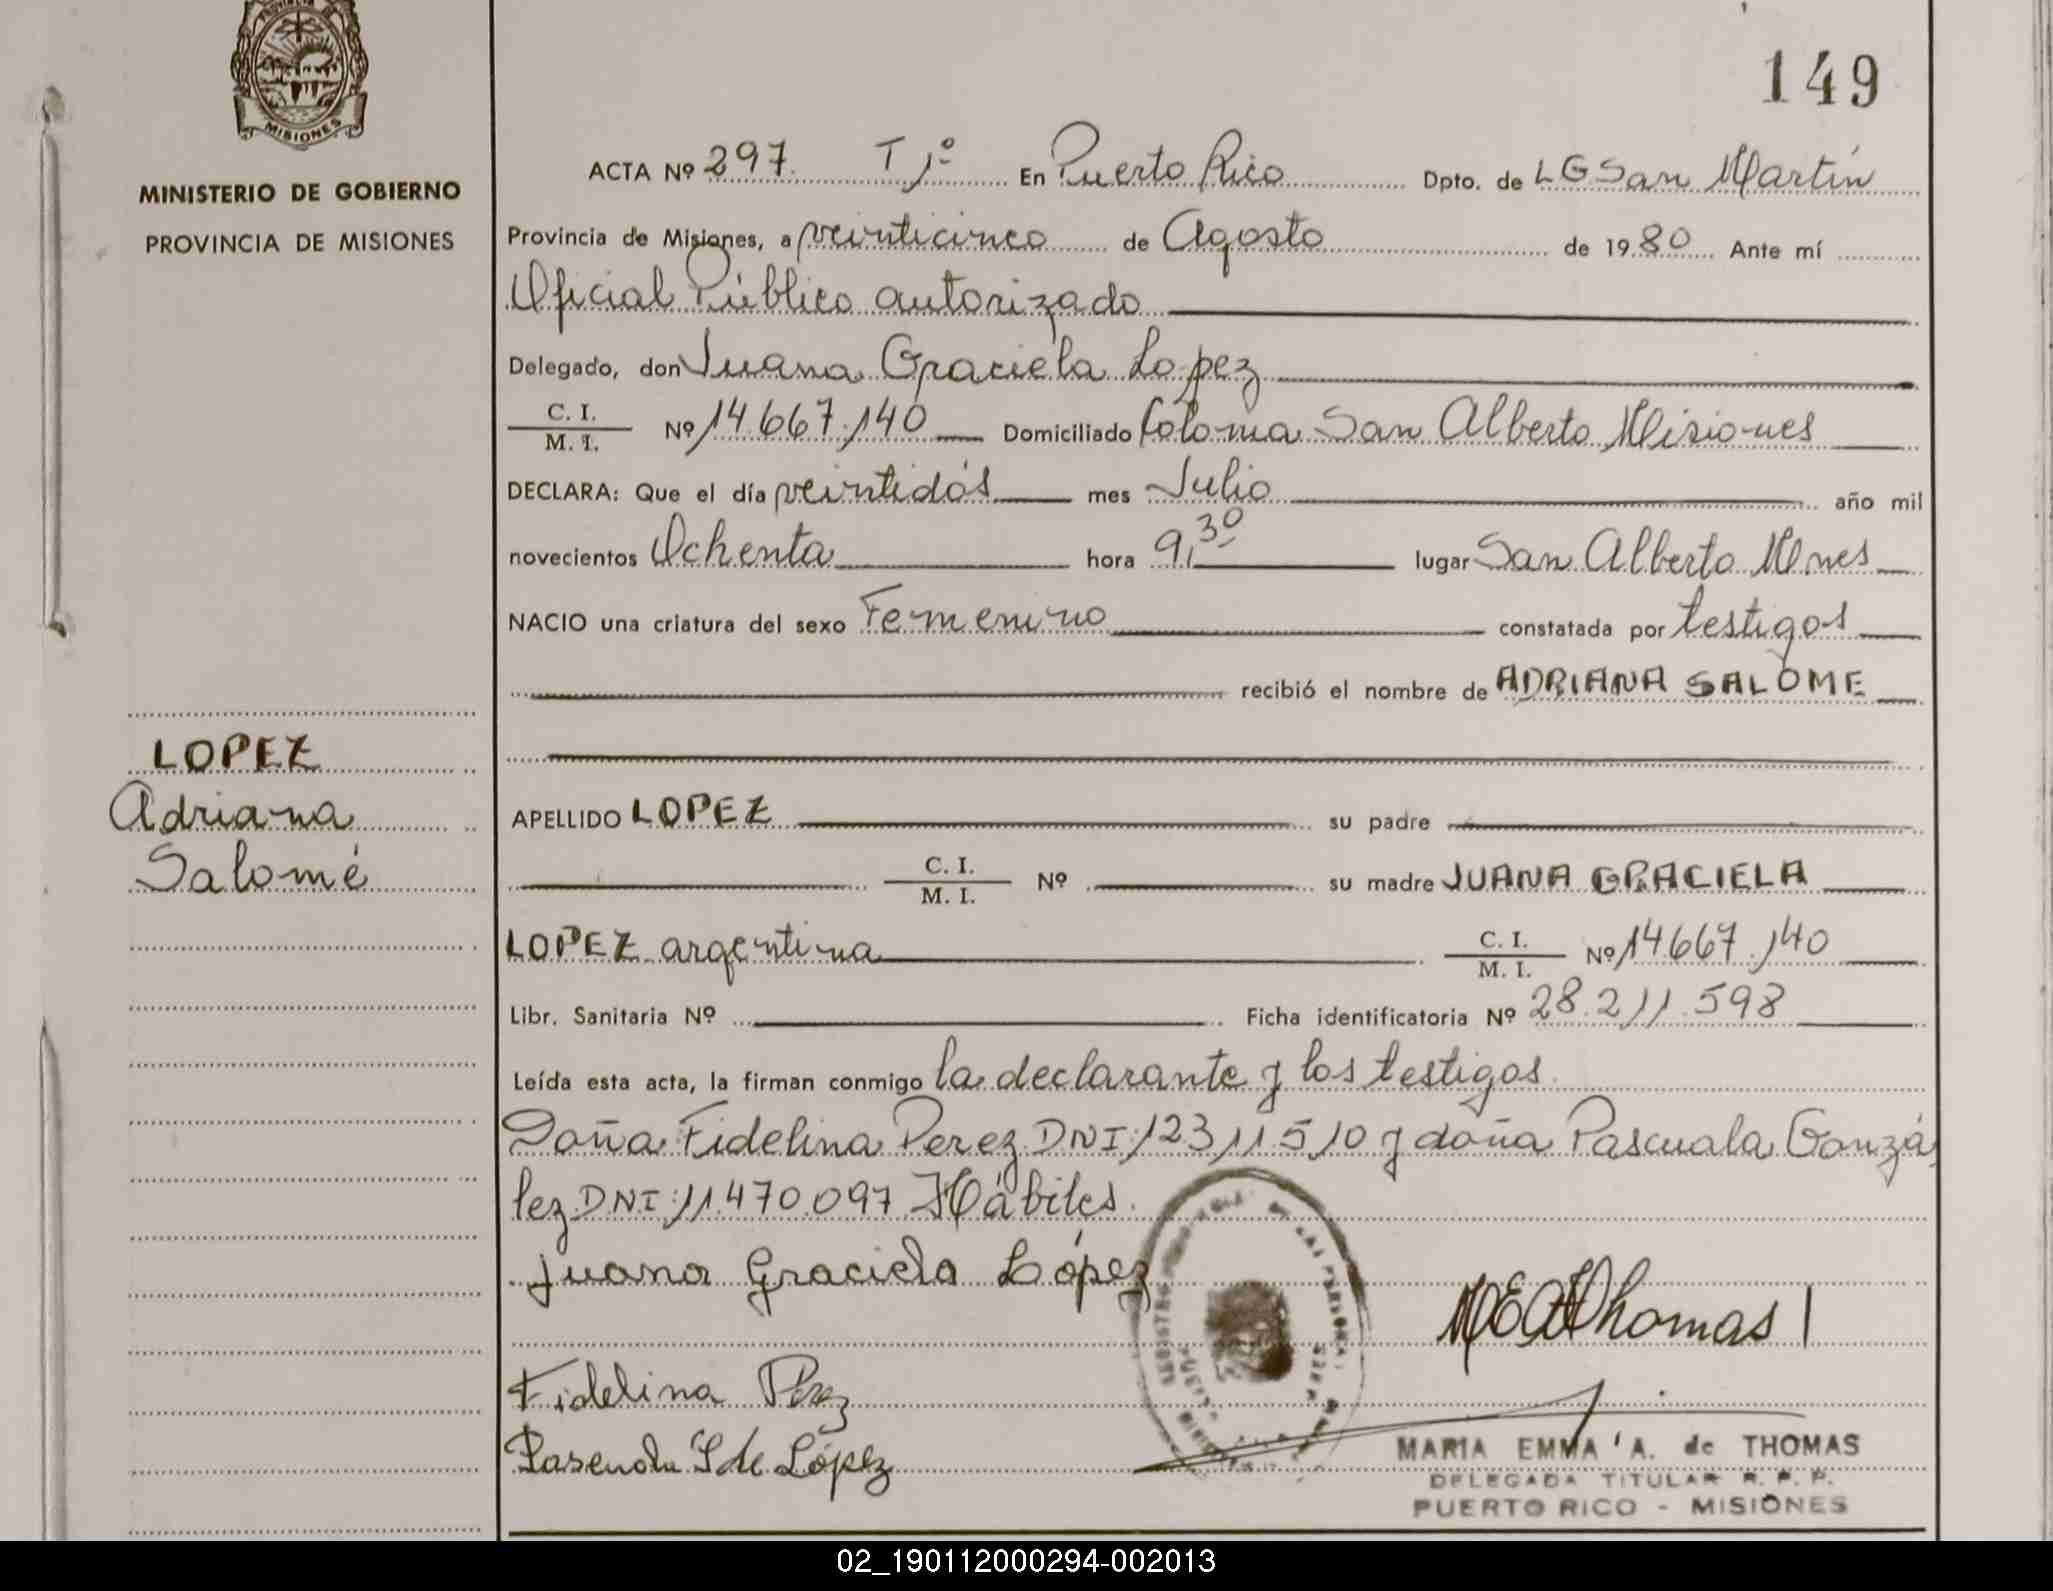 149
MISIONES
MINISTERIO DE GOBIERNO
PROVINCIA DE MISIONES
ACTA Nº 297 T 1º En Puerto Rico Dpto. de LG San Martín
Provincia de Misiones, a veinticinco de Agosto de 1980 Ante mí
Oficial Público autorizado
Delegado, don Juana Graciela Lopez
C. I. / M. I. Nº 14.667.140 Domiciliado Colonia San Alberto Misiones
DECLARA: Que el día veintidós mes Julio año mil
novecientos Ochenta hora 9,30 lugar San Alberto Mnes
NACIO una criatura del sexo Femenino constatada por testigos
recibió el nombre de ADRIANA SALOME
LOPEZ
Adriana
Salomé
APELLIDO LOPEZ su padre
C. I. / M. I. Nº su madre JUANA GRACIELA
LOPEZ argentina C. I. / M. I. Nº 14.667.140
Libr. Sanitaria Nº Ficha identificatoria Nº 28.211.598
Leída esta acta, la firman conmigo la declarante y los testigos
Doña Fidelina Perez DNI: 12311510 y doña Pascuala Gonzá
lez DNI: 11.470.097 Hábiles.
Juana Graciela López
MEA Thomas
Fidelina Perez
de López
MARIA EMMA A. de THOMAS
DELEGADA TITULAR R. P. P.
PUERTO RICO - MISIONES
02_190112000294-002013